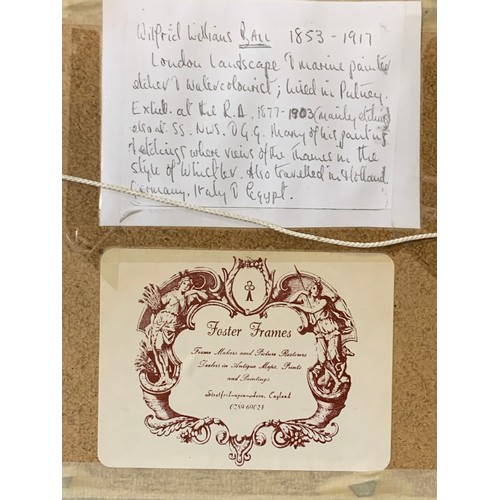 Wilfrid Williams BALL 1853-1917
London Landscape & marine painter
etcher & watercolourist; lived in Putney.
Exhib. at the R.A. 1877-1903 (mainly etchings
also at SS. NWS. & G.G. Many of his paintings
& etchings where views of the Thames in the
style of Whistler. Also travelled in Holland
Germany, Italy & Egypt.
Foster Frames
Frame Makers and Picture Restorers
Dealers in Antique Maps, Prints
and Paintings
Stratford-upon-Avon, England
0789 69028